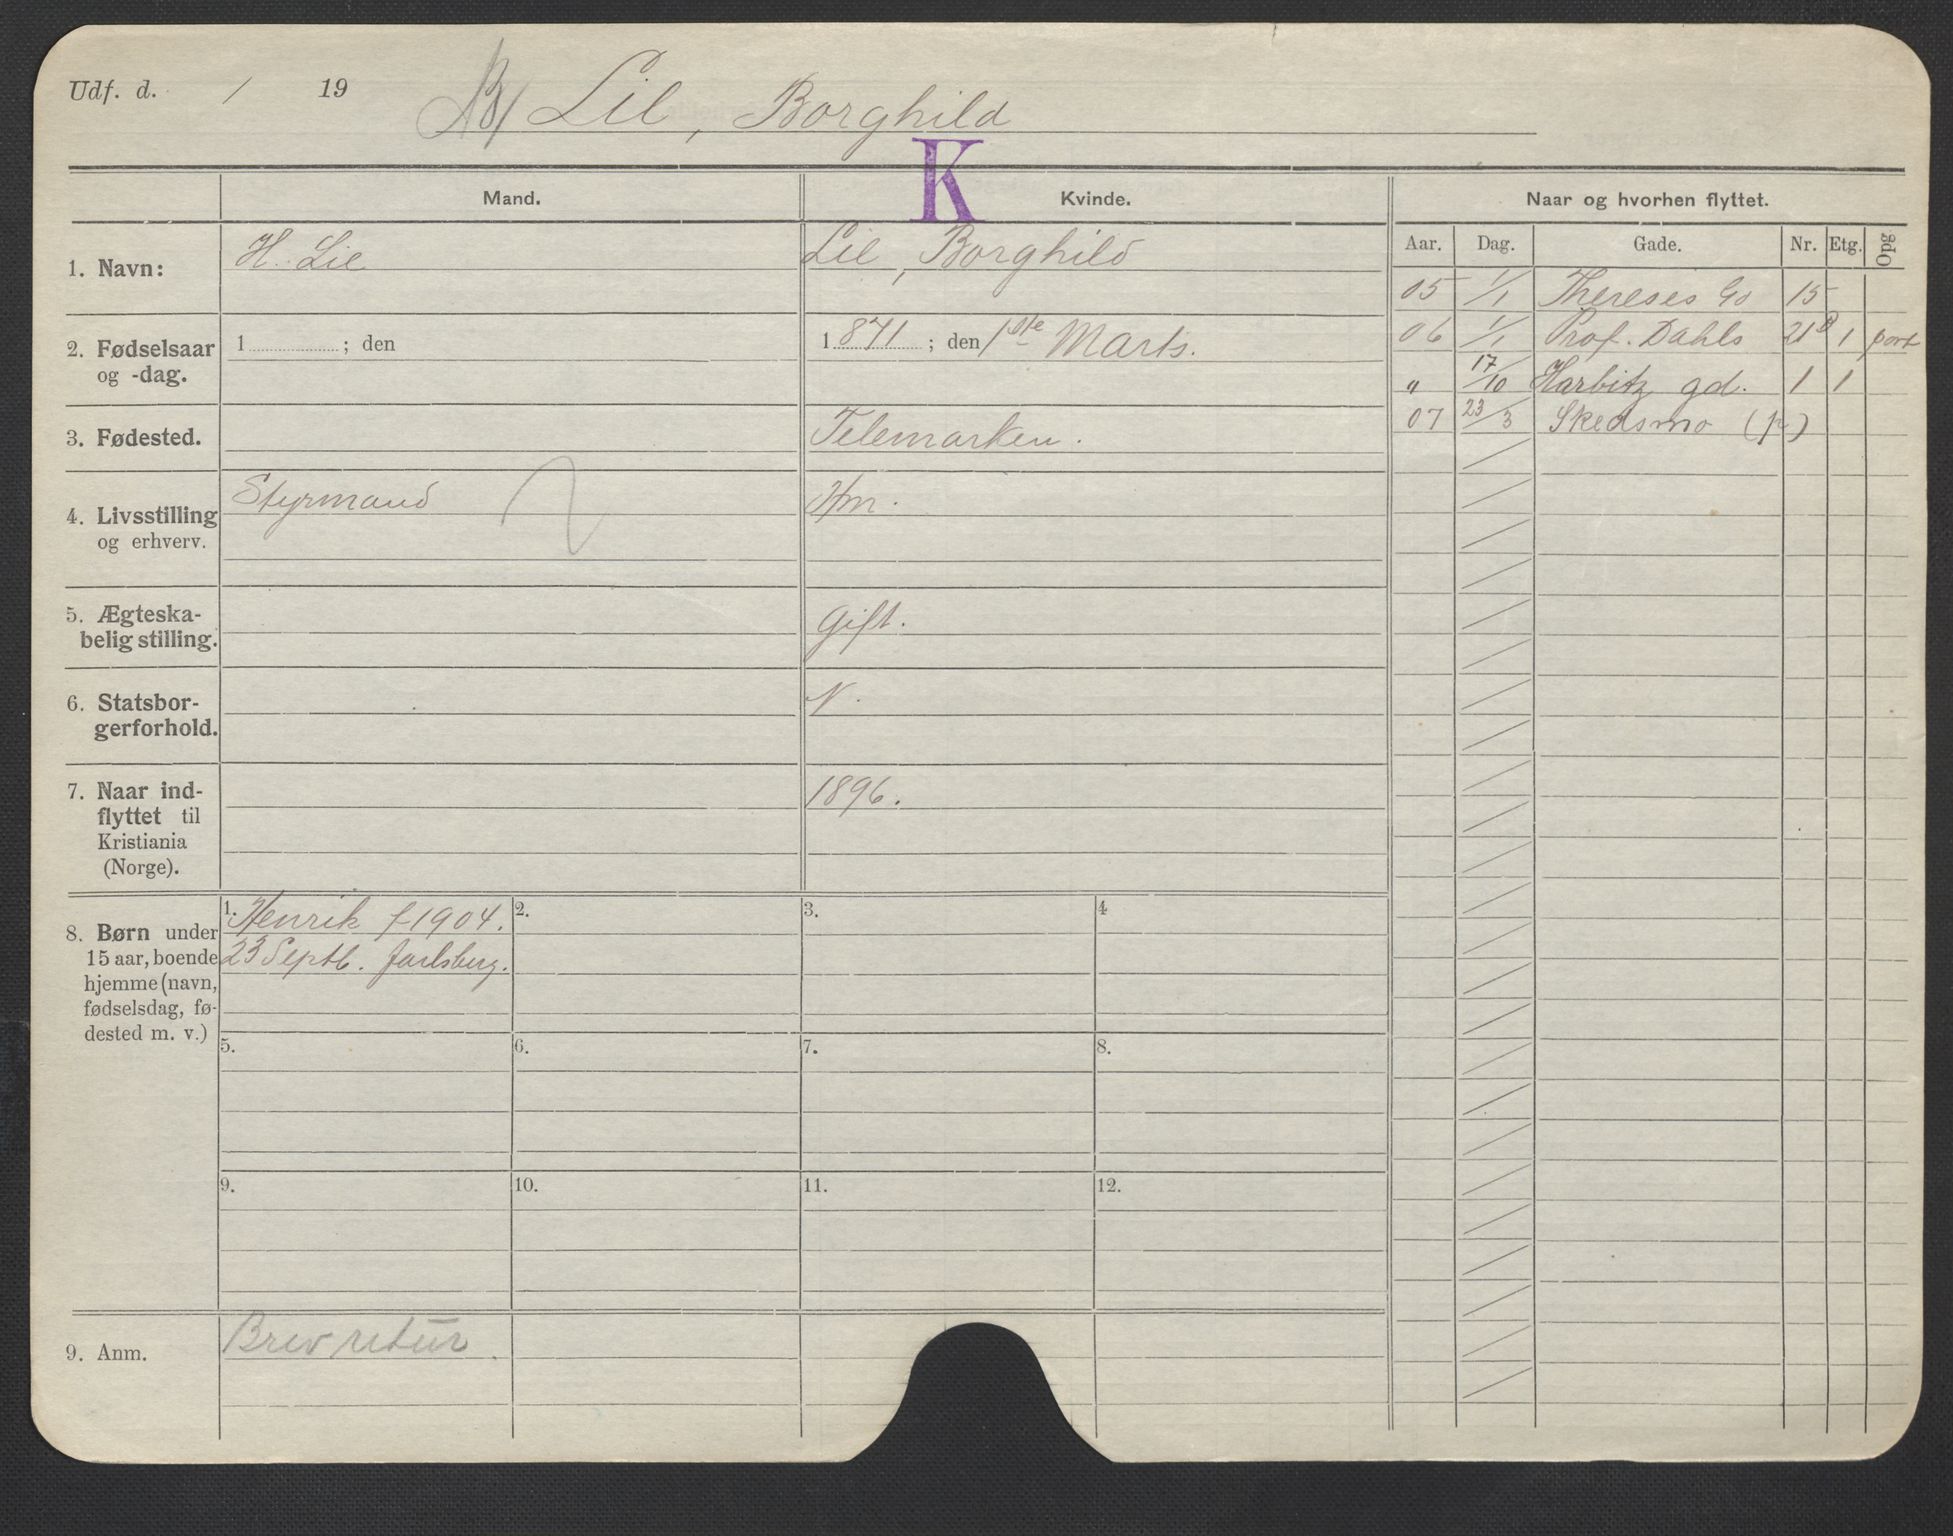 Udf. d. / 19 Lie, Borghild
K
Mand. Kvinde. Naar og hvorhen flyttet.
Aar. Dag. Gade. Nr. Etg. Opg
1. Navn: H. Lie Lie, Borghild
05 1/1 Thereses Gd 15
2. Fødselsaar og -dag. 1 ; den 1871 ; den 1ste Marts.
06 1/1 Prof. Dahls 21B 1 port
" 17/10 Harbitz gd. 1 1
07 23/3 Skedsmo (p)
3. Fødested. Telemarken.
4. Livsstilling og erhverv. Styrmand Hm.
5. Ægteska-
belig stilling. Gift.
6. Statsbor-
gerforhold. N.
7. Naar ind-
flyttet til
Kristiania
(Norge). 1896.
8. Børn under
15 aar, boende
hjemme (navn,
fødselsdag, fø-
dested m. v.)
1. Henrik f 1904.
23 Septb. Jarlsberg.
2. 3. 4
5. 6. 7. 8.
9. 10. 11. 12.
9. Anm. Brev retur.